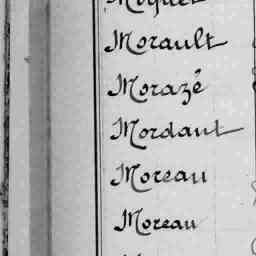 Moquet
Morault
Morazé
Mordant
Moreau
Moreau